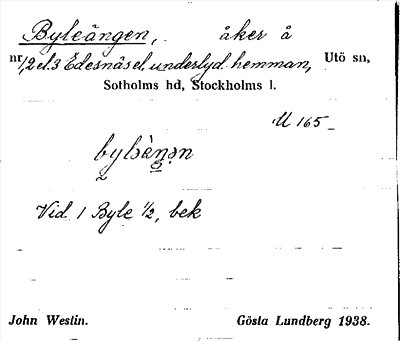 Byleängen, åker å
nr 1,2 el. 3 Edesnäs el. underlyd. hemman, Utö sn,
Sotholms hd, Stockholms l.
U 165
bylèŋən
Vid 1 Byle ½, bek
John Westin. Gösta Lundberg 1938.